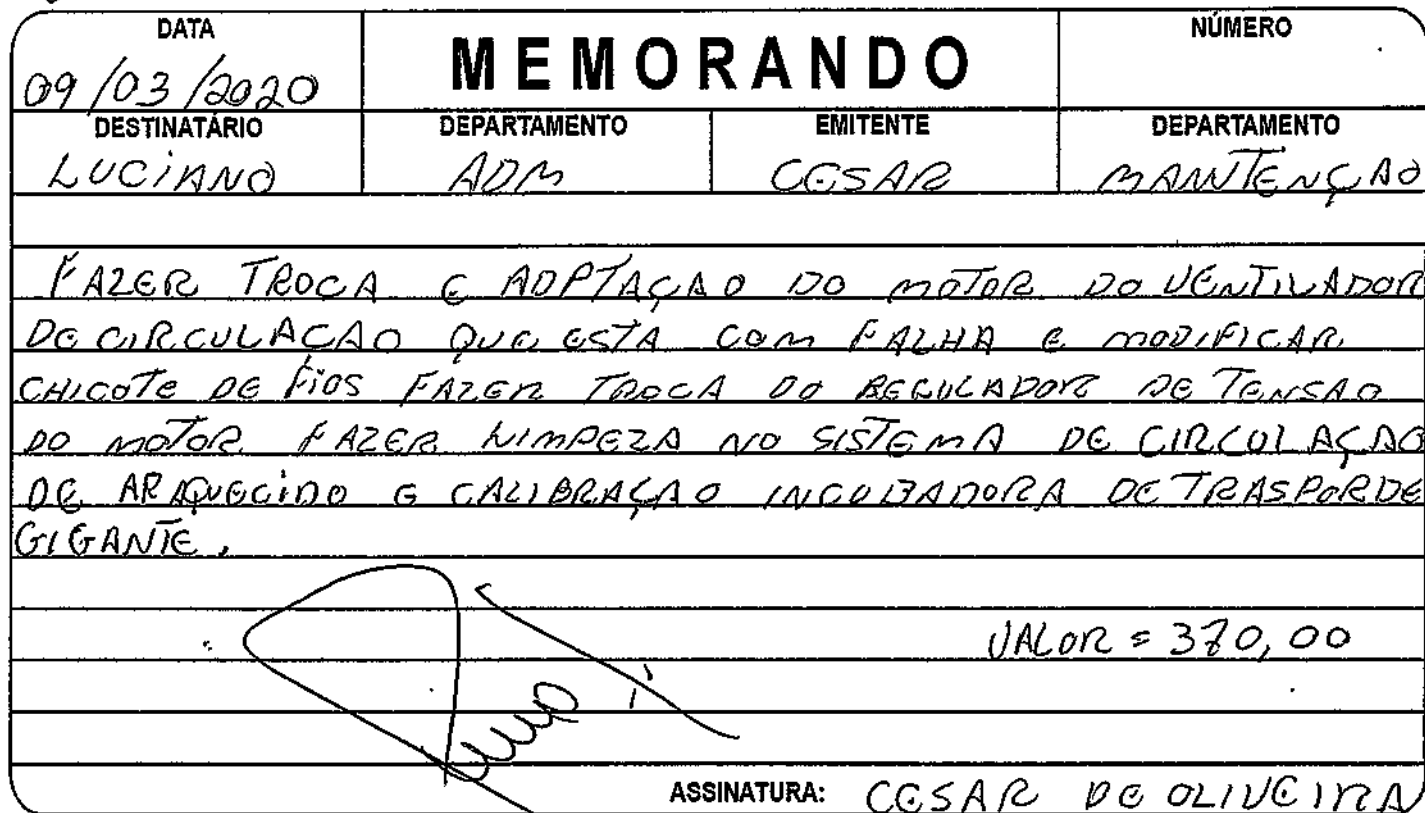 DATA
MEMORANDO
NÚMERO
09/03/2020
DESTINATÁRIO DEPARTAMENTO EMITENTE DEPARTAMENTO
LUCIANO ADM CESAR MANTENÇÃO
FAZER TROCA E ADPTAÇAO DO MOTOR DO VENTILADOR
DE CIRCULACAO QUE ESTA COM FALHA E MODIFICAR
CHICOTE DE FIOS FAZER TROCA DO REGULADOR DE TENSAO
DO MOTOR FAZER LIMPEZA NO SISTEMA DE CIRCULAÇAO
DE AR AQUECIDO E CALIBRAÇAO INCUBADORA DE TRASPORDE
GIGANTE.
VALOR = 370,00
ASSINATURA: CESAR DE OLIVEIRA